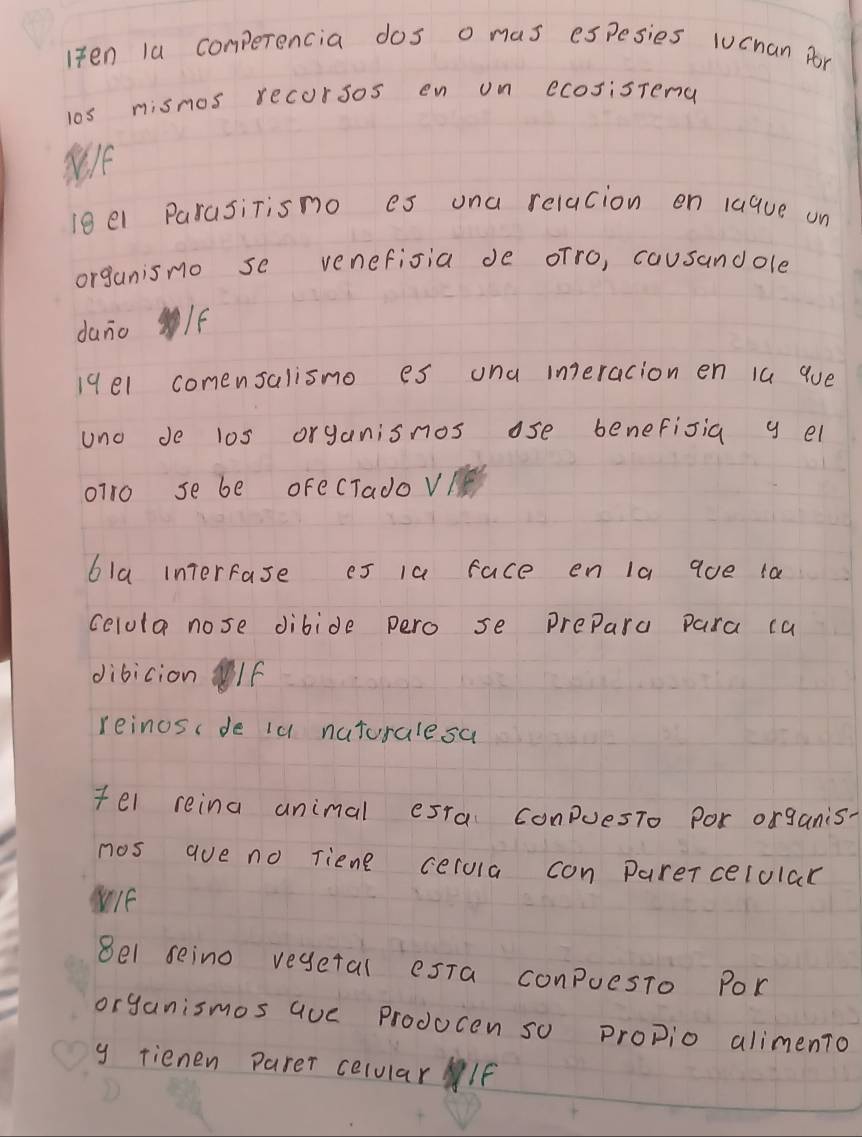 17en la competencia dos o mas espesies luchan por
los mismos recursos en un ecosistema
V/F
18 el Parasitismo es una relacion en laque un
organismo se venefisia de otro, causandole
daño V/F
19 el comensalismo es una interacion en la que
uno de los organismos ose benefisia y el
otro se be ofectado V/F
6la interfase es la face en la que la
celula nose dibide pero se prepara para la
dibicion V/F
reinos de la naturalesa
7el reina animal esta conpuesto por organis-
mos que no tiene celula con paret celular
V/F
8el reino vegetal esta conpuesto por
organismos que producen su propio alimento
y tienen paret celular V/F